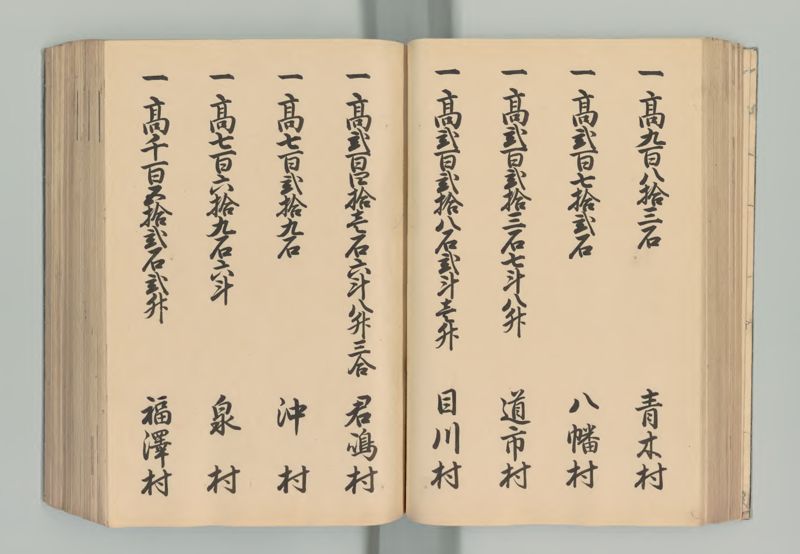 一高九百八拾三石 青木村
一高弐百七拾弐石 八幡村
一高弐百弐拾三石七斗八升 道市村
一高弐百弐拾八石弐斗壱升 目川村
一高弐百四拾壱石六斗八升三合 君嶋村
一高七百弐拾九石 沖村
一高七百六拾九石六斗 泉村
一高千百五拾弐石弐升 福澤村